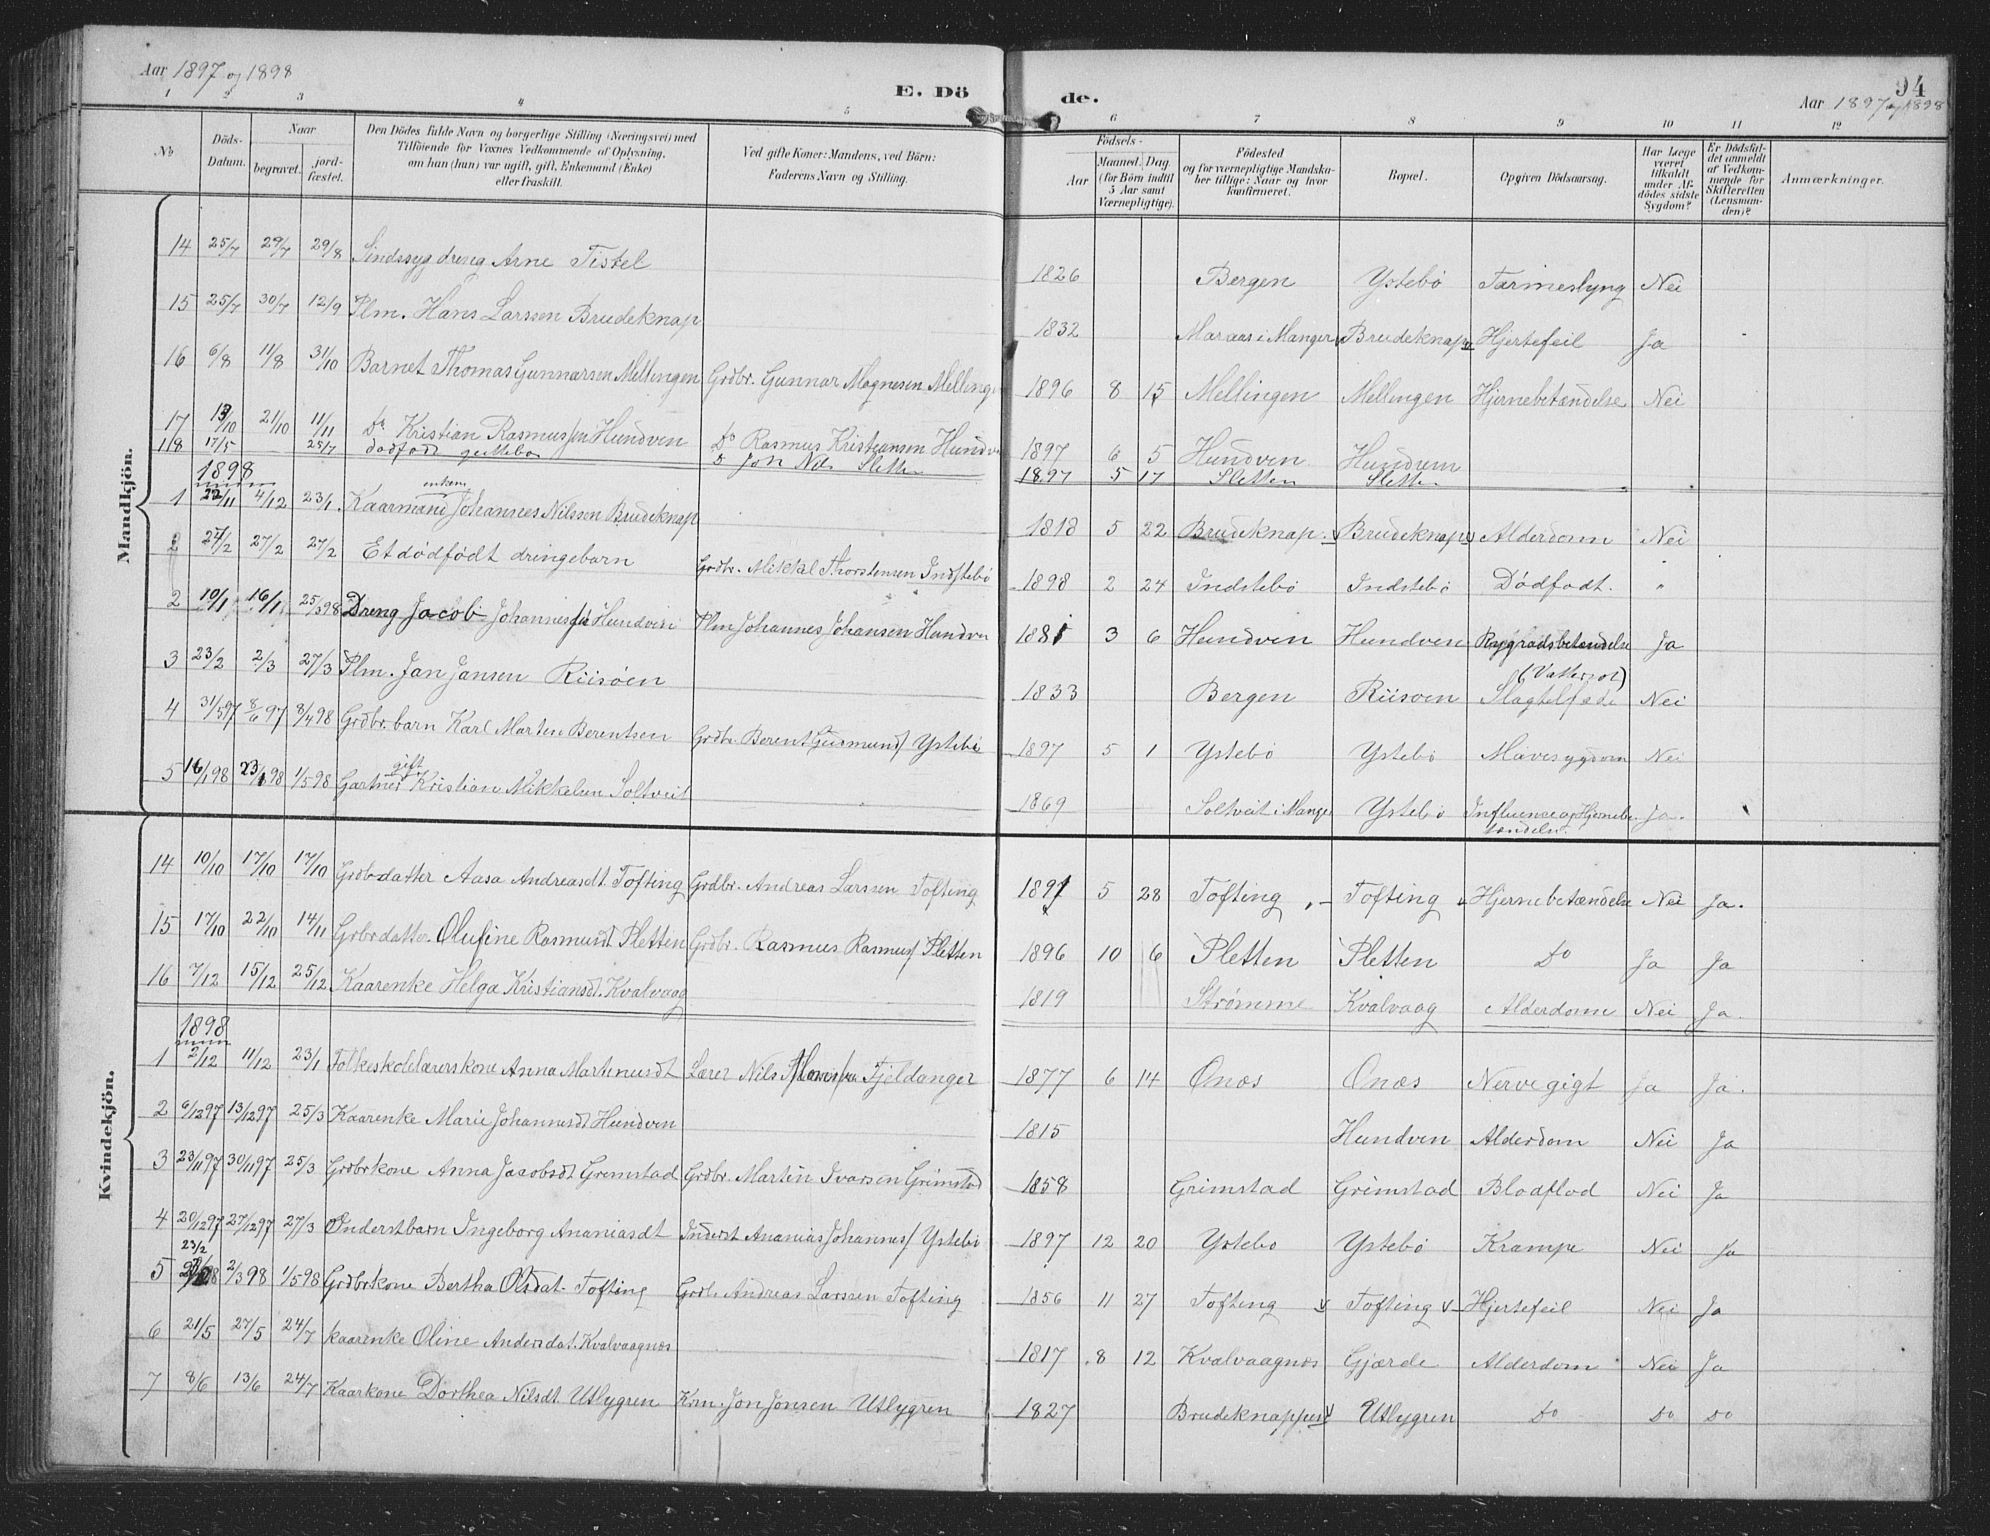 Aar 1897 og 1898
E. Dö
de.
94
Aar 1897 og 1898
1 2 3 4 5 6 7 8 9 10 11 12
No
Döds-Datum.
Naar
begravet.
jord-fæstet.
Den Dödes fulde Navn og borgerlige Stilling (Næringsvei) med
Tilföiende for Voxnes Vedkommende af Oplysning,
om han (hun) var ugift, gift, Enkemand (Enke)
eller fraskilt.
Ved gifte Koner: Mandens, ved Börn:
Faderens Navn og Stilling.
Födsels-
Aar
Maaned. Dag.
(for Börn indtil
5 Aar samt
Værnepligtige).
Födested
og for værnepligtige Mandska-
ber tillige: Naar og hvor
konfirmeret.
Bopæl.
Opgiven Dödsaarsag.
Har Læge
været
tilkaldt
under Af-
dödes sidste
Sygdom?
Er Dödsfal-
det anmeldt
af Vedkom-
mende for
Skifteretten
(Lensman-
den)?
Anmærkninger.
Mandkjön.
14 25/7 29/7 29/8 Sindssyg dreng Arne Tistel 1826 Bergen Ystebö Tarmeslyng Nei
15 25/7 30/7 12/9 Plm. Hans Larssen Brudeknap 1832 Maraas i Manger Brudeknap Hjertefeil Ja
16 6/8 11/8 31/10 Barnet Thomas Gunnarsen Mellingen Grdbr. Gunnar Magnesen Mellinge 1896 8 15 Mellingen Mellingen Hjernebetændelse Nei
17 13/10 21/10 11/11 Do Kristian Rasmussen Hundven Do Rasmus Kristiansen Hundv 1897 6 5 Hundven Hundven
18 17/5 25/7 dødfødt guttebn Nils Sletten 1897 5 17 Sletten Sletten
1898
1 22/11 4/12 23/1 Kaarmand enkem Johannes Nilsson Brudeknap 1818 5 22 Brudeknap Brudeknap Alderdom Nei
2 24/2 27/2 27/2 Et dödfödt drengebarn Grdbr. Mikkal Thorstensen Indstebö 1898 2 24 Indstebö Indstebö Dödfødt. "
2 10/1 16/1 25/3 98 Dreng Jacob Johannessen Hundven Plm Johannes Johansen Hundven 1881 3 6 Hundven Hundven Rygradsbetændelse Ja
3 23/2 2/3 27/3 Plm. Jan Jansen Riisöen 1833 Bergen Riisöen (Vattersot) Nei
4 31/5 97 8/6 97 8/4 98 Grdbr.barn Karl Marten Berentsen Grdbr. Berent Gusmunds Ystebö 1897 5 1 Ystebö Ystebö Mavesygdom Nei
5 16/1 98 23/1 98 1/5 98 Gartner gift Kristian Mikkelsen Soltveit 1869 Soltveit i Mange Ystebö Influense og Hjernebe-
tændelse. Ja.
Kvindekjön.
14 10/10 17/10 17/10 Grdbrdatter Aasa Andreasdt. Tofting Grdbr. Andreas Larssen Tofting 1891 5 28 Tofting Tofting Hjernebetændelse Nei Ja.
15 17/10 22/10 14/11 Grbrdatter Olufine Rasmusdt Pletten Grdbr. Rasmus Rasmuss Pletten 1896 10 6 Pletten Pletten Do Ja Ja
16 7/12 15/12 25/12 Kaarenke Helga Kristiansdt. Kvalvaag 1819 Strømme Kvalvaag Alderdom Nei Ja.
1898
1 2/12 11/12 23/1 Folkeskolelærerskone Anna Martinusdt Lærer Nils Fjeldanger 1877 6 14 Onæs Onæs Nervegigt Ja Ja.
2 6/12 97 13/12 97 25/3 Kaarenke Marie Johannesdt Hundven 1815 Hundven Alderdom Nei Ja
3 23/11 97 30/11 97 25/3 Grdbrkone Anna Jacobsdt Grimstad Grdbr. Martin Ivarsen Grimstad 1858 Grimstad Grimstad Blodflod Nei Ja
4 20/12 97 27/12 97 27/3 Onderstbarn Ingeborg Ananiasdt Inderst Ananias Johanness Ystebö 1897 12 20 Ystebö Ystebö Krampe Nei Ja
5 23/2 2/3 98 1/5 98 Grdbrkone Bertha Olsdat. Tofting Grdb. Andreas Larssen Tofting 1856 11 27 Tofting Tofting Hjertefeil Nei Ja
6 21/5 27/5 24/7 kaarenke Oline Andersdat. Kvalvaagnæs 1817 8 12 Kvalvaagnæs Gjærde Alderdom Nei Ja
7 8/6 13/6 24/7 Kaarkone Dorthea Nilsdt Utlygren Krm. Jon Jonsen Utlygren 1827 Brudeknappen Utlygren Do Do Do